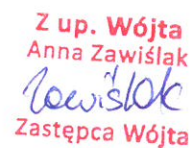 Z up. Wójta
Anna Zawiślak
Zawiślak
Zastępca Wójta